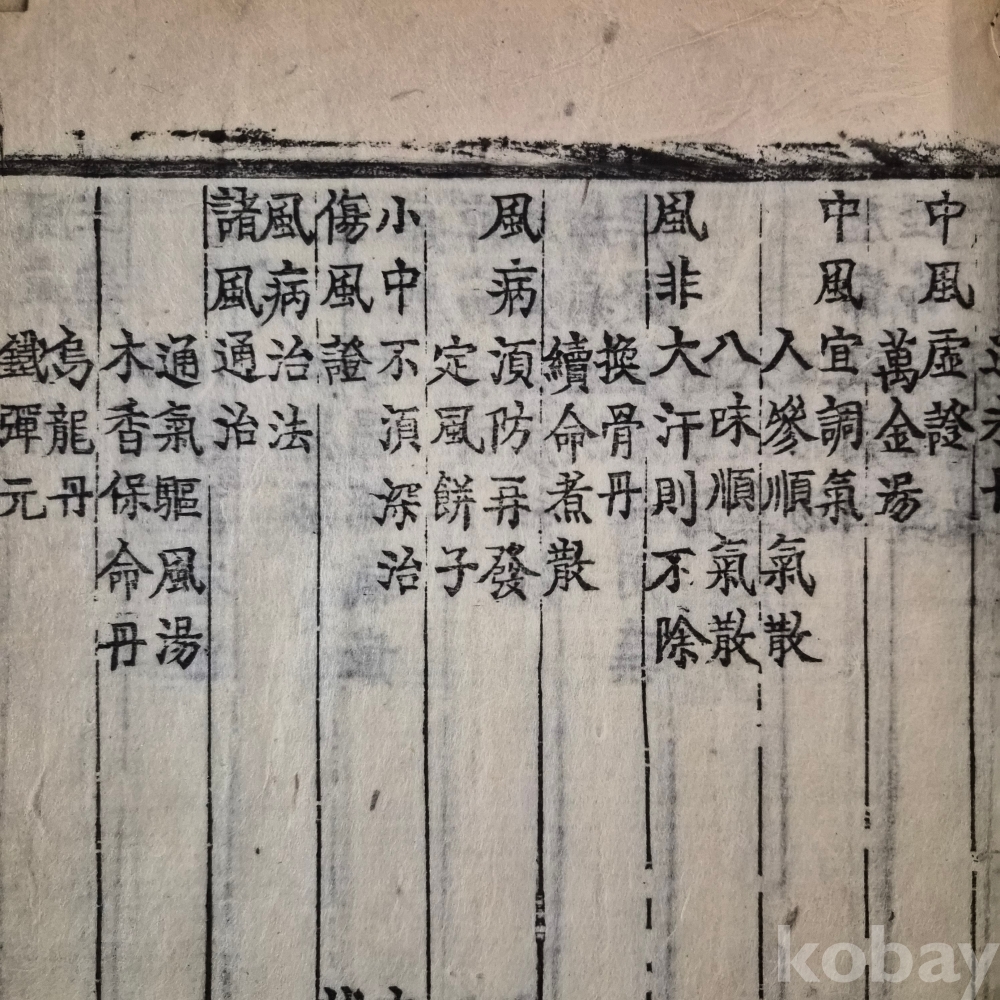 中風虛證
萬金湯
中風宜調氣
人參順氣散
八味順氣散
風非大汗則不除
換骨丹
續命煮散
風病須防再發
定風餅子
小中不須深治
傷風證
風病治法
諸風通治
通氣驅風湯
木香保命丹
烏龍丹
鐵彈元
kobay